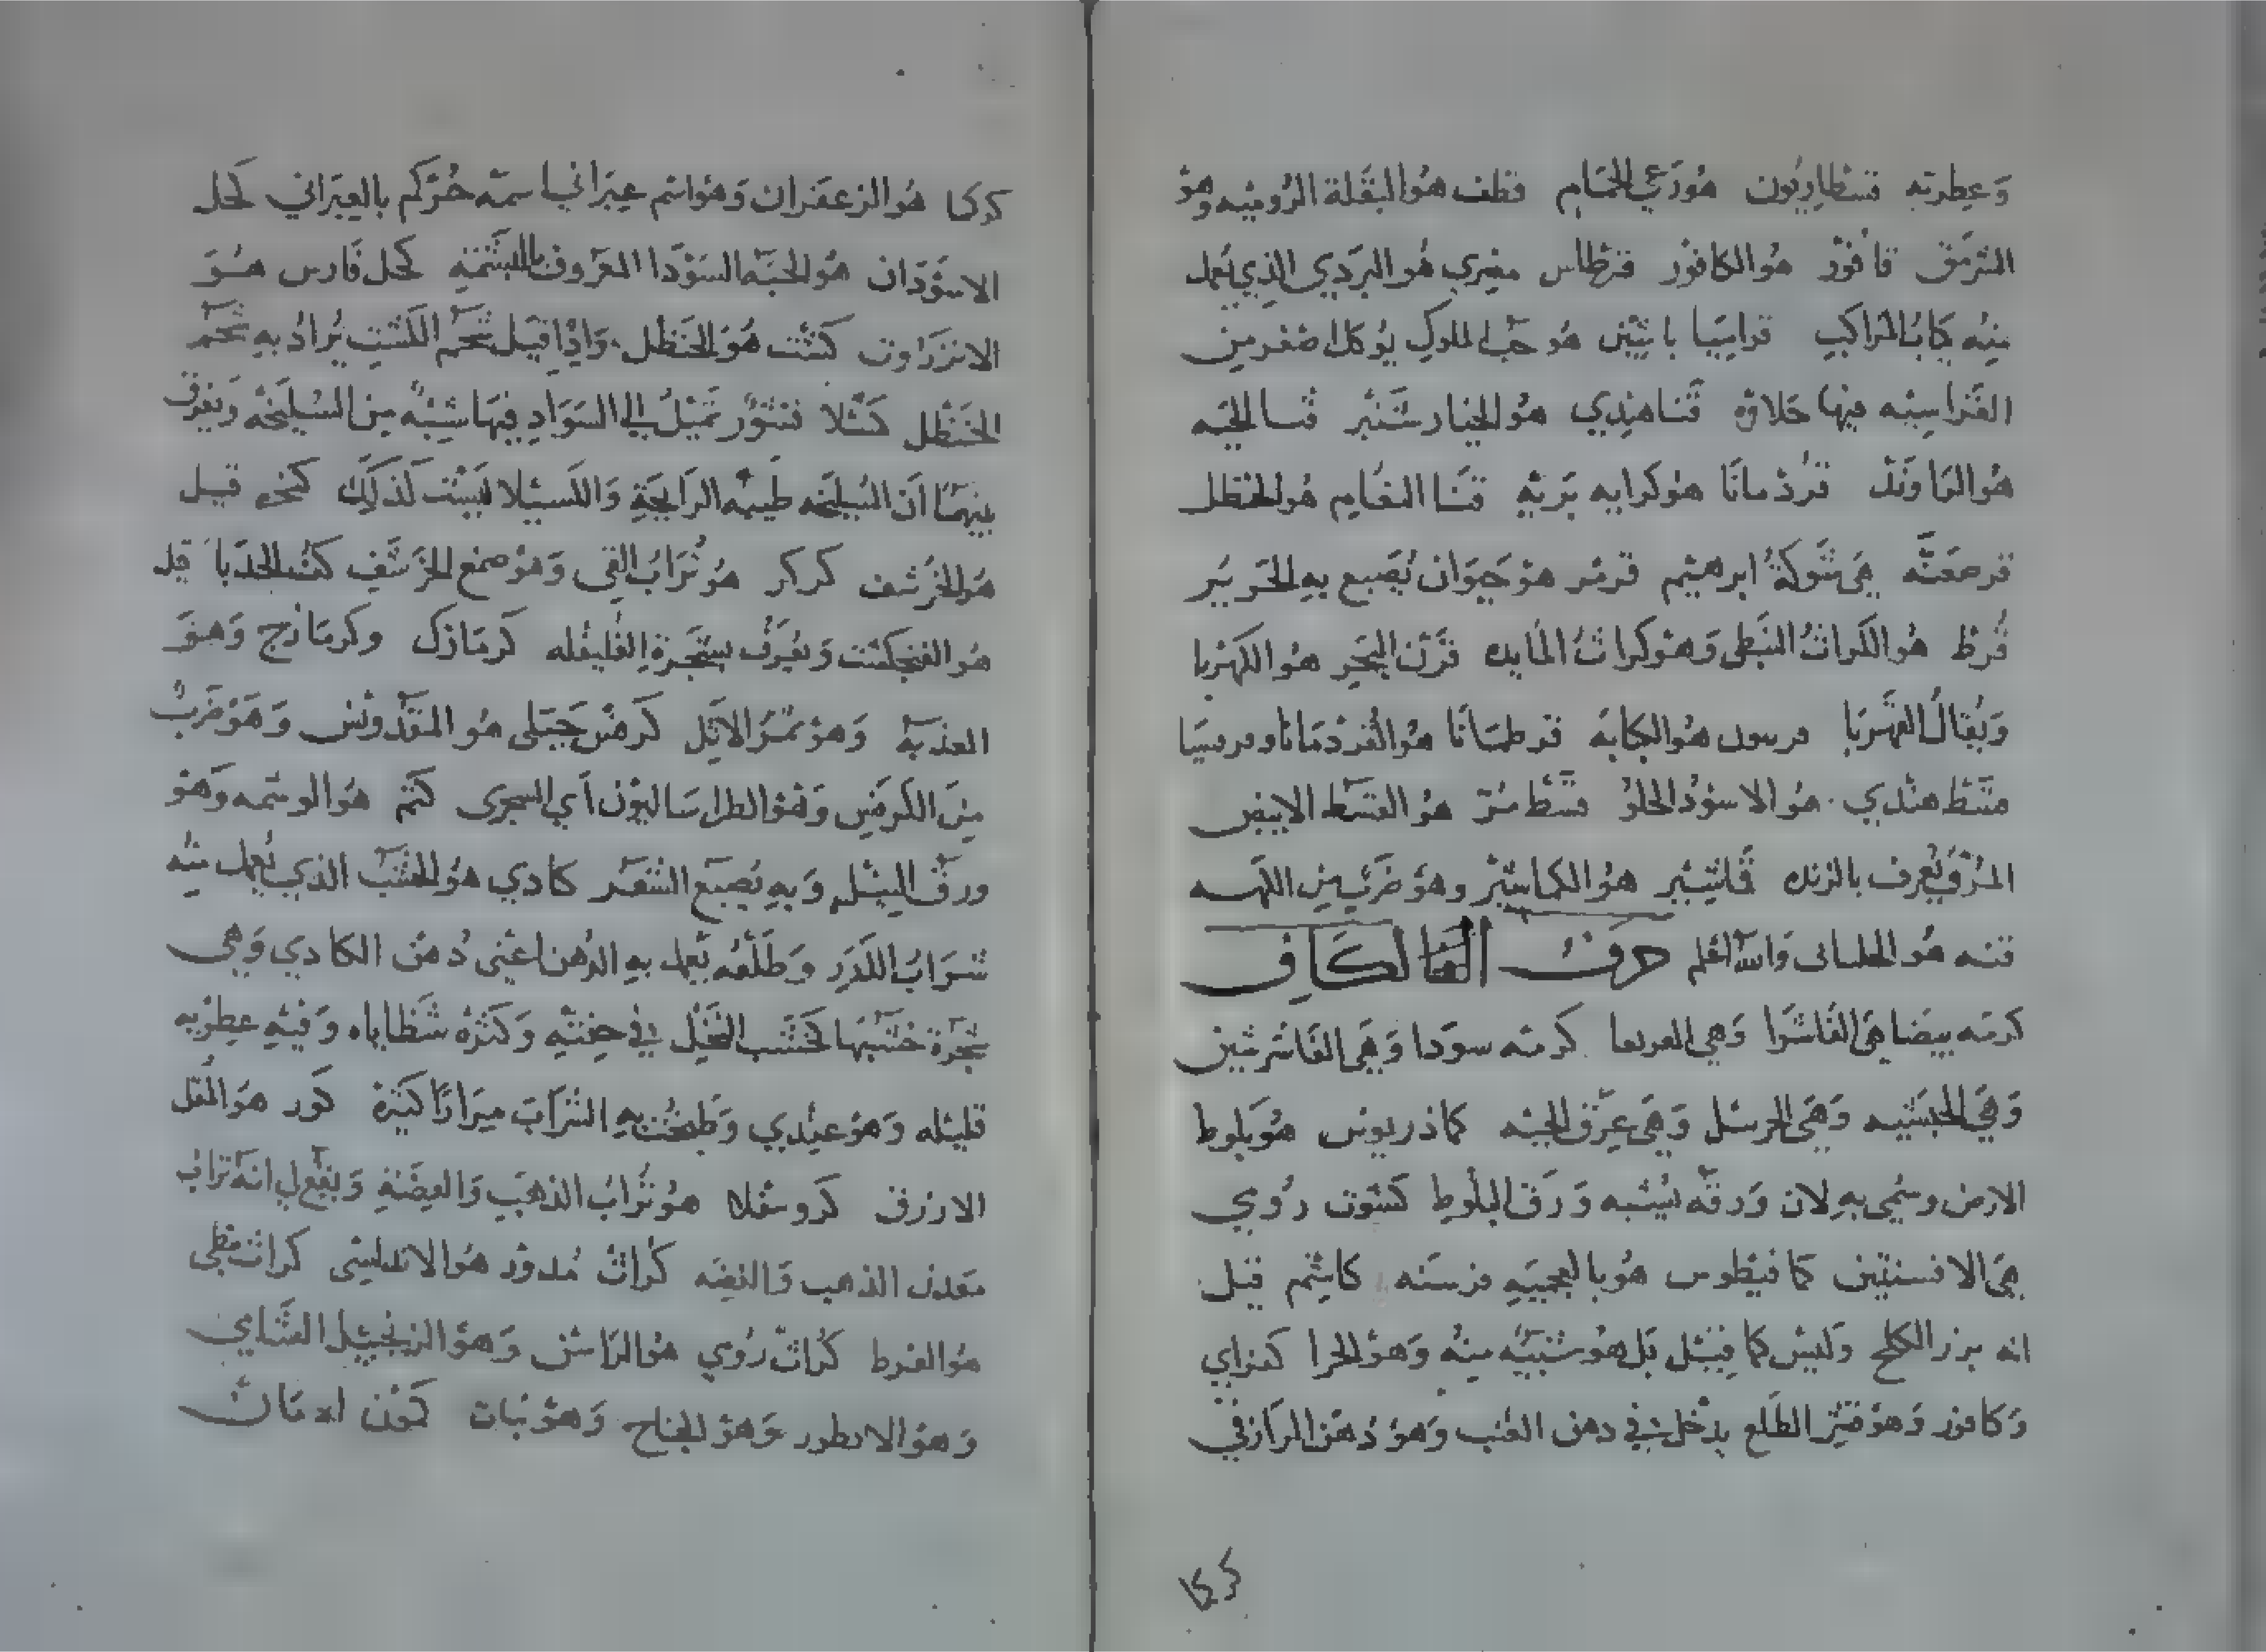 وعطرته قسطاريون هو رعي الحمام قطف هو البقلة الرومية وهو
السرمق قافور هو الكافور قرطاس مصري هو البردي الذي يعمل
منه كاب المراكب قراسيا با هو حب الملوك يوكل اصغر من
القراسيه فيها حلاوه قثا هندي هو الخيار شنبر قثا الحيه
هو الراوند قردمانا هو كراويه بريه قثا النعام هو الحنظل
قرصعنه هي شوكة ابرهيم قرمز هو حيوان يصبغ به الحرير
قرط هو الكراث النبطي وهو كراث المايده قرن البحر هو الكهربا
ويقال القهربا هو الكبابه قرطمانا هو القردمانا
قسط هندي هو الاسود الحلو قسط مر هو القسط الابيض
المر يعرف بالزند قاشبير هو الكاشبير وهو ضرب من
قنه هو والله اعلم حرف الكاف
كرمه بيضا هي الفاشرا وهي كرمه سودا وهي الفاشرشين
وهي الحبشيه وهي وهي عرق الحيه كماذريوس هو بلوط
الارض وسمي به لان ورقه يشبه ورق البلوط كشوت رومي
هي الافسنتين كمافيطوس هو بالعجميه كاشم قيل
انه بزر الكلخ وليس كما قيل بل هو شبيه منه وهو كفراي
وكافور وهو قشر الطلع يدخل في دهن العنب وهو دهن الرازقي
كركما
كركما هو الزعفران وهو اسم عبراني اسمه كركم بالعبراني كحل
الاسودان هو الحبه السودا المعروف بالبشمه كحل فارس هو
الانزروت كشت هو الحنظل واذا قيل شحم الكشت يراد به شحم
الحنظل كسلا قشور تميل الى السواد فيها شبه من السليخه ويفرق
بينهما ان السليخه طيبه الرايحة والكسيلا ليست كذلك قيل
هو الخرشف كركر هو تراب القي وهو صمغ الخرشف قيل
هو الفنجكشت ويعرف بشجرة الفليفله كرمازك وكرمازج وهو
العذبه وهو ثمر الاثل كرفس جبلي هو المقدونس وهو ضرب
من الكرفس وهو الطراساليون اي كتم هو الوسمه وهو
ورق النيل وبه يصبغ الشعر كادي هو الخشب الذي يعمل منه
شراب الكدر وطلعه يعمل به الدهن اعني دهن الكادي وهي
شجرة خشبها كخشب النخيل في خفته وكثرة شظاياه وفيه عطريه
قليله وهو عندي وطبخت به الشراب مرارا كثيرة كور هو المقل
الازرق كروسقلا هو تراب الذهب والفضة ويقع لي انه تراب
معدن الذهب والفضه كراث مدور هو الاندلسي كراث نبطي
هو القرط كراث رومي هو الراسن وهو الزنجبيل الشامي
وهو وهو الجناح وهو نبات كمون